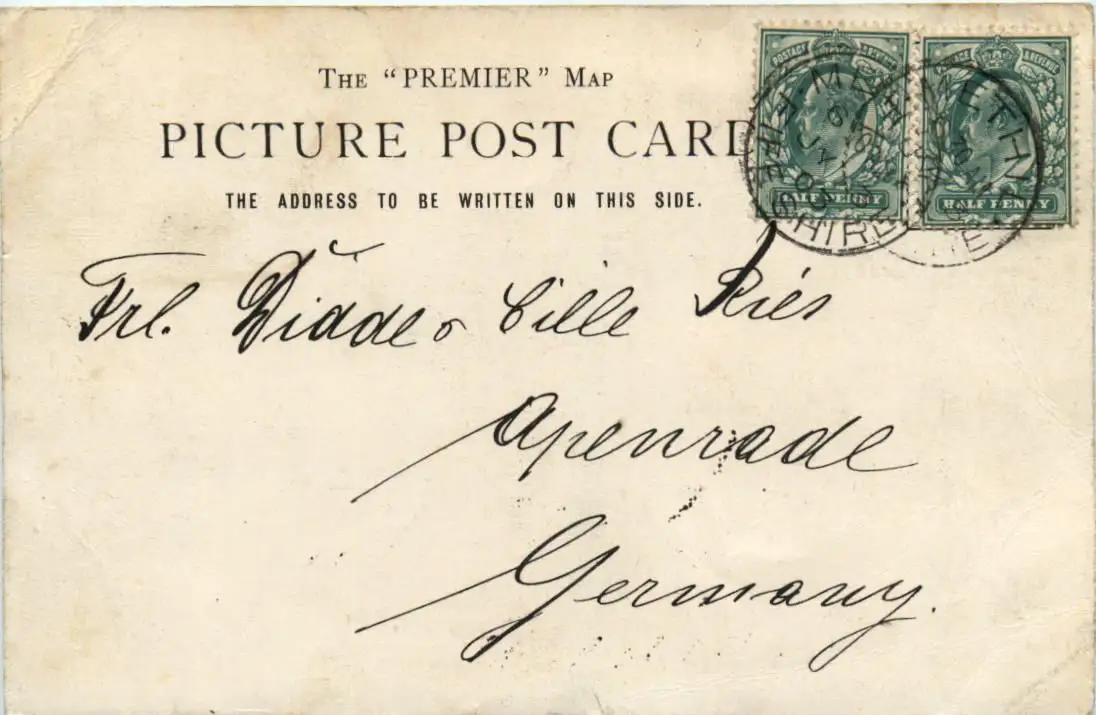 THE “PREMIER” MAP
PICTURE POST CARD
THE ADDRESS TO BE WRITTEN ON THIS SIDE.
POSTAGE REVENUE
HALF PENNY
HALF PENNY
METHIL
FIFESHIRE
Frl. Didde & Cille Riés
Apenrade
Germany.